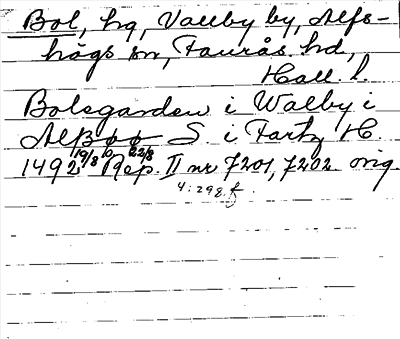 Bol, hg, Vallby by, Alfs-
högs sn, Faurås hd,
Hall. l.
Bolsgarden i Walby i
Alßøø S. i Fartz H.
1492 19/8 o 22/8 Rep. II nr 7201, 7202 orig.
4:298 f.